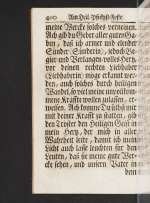 400 Am Heil. Pfingst-Feste
meine Wercke solches verneinen.
Ach gib du Geber aller guten Ga-
ben, daß ich armer und elender
Sünder, Sünderin, jedoch Be-
gier und Verlangen volles Hertz,
vor deinen rechten Liebhaber,
Liebhaberin, möge erkannt wer-
den, auch solches durch heiligen
Wandel, so viel meine unvollkom-
mene Kräffte wollen zulassen, er-
weisen. Ach komme du selbst mir
mit deinen Kräfften zu statten, gib
den Tröster den Heiligen Geist in
mein Hertz, der mich in aller
Wahrheit leite, damit ich mein
Licht auch lasse leuchten für den
Leuten, daß sie meine gute Wer-
cke sehen, und unsern Vater im
dem